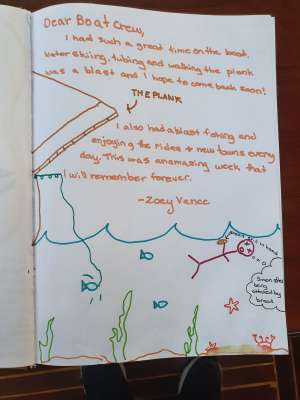 Dear Boat Crew,
I had such a great time on the boat.
Water skiing, tubing and walking the plank
was a blast and I hope to come back soon!
THE PLANK
I also had a blast fishing and
enjoying the rides + new towns every
day. This was an amazing week that
I will remember forever.
-Zoey Vance
Simon after
being
attacked by
bread